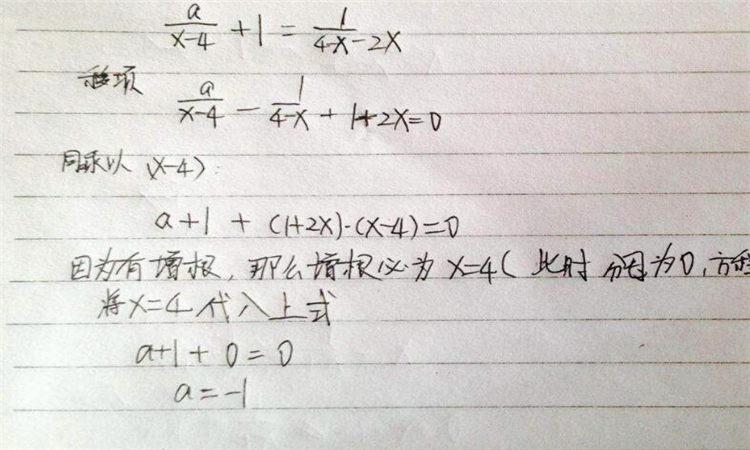 a/(x-4) + 1 = 1/(4-x) - 2x
移项
a/(x-4) - 1/(4-x) + 1+2x=0
同乘以 (x-4):
a+1 + (1+2x)·(x-4)=0
因为有增根,那么增根必为 x=4( 此时 分母为0,方程
将x=4 代入上式
a+1 + 0 = 0
a = -1